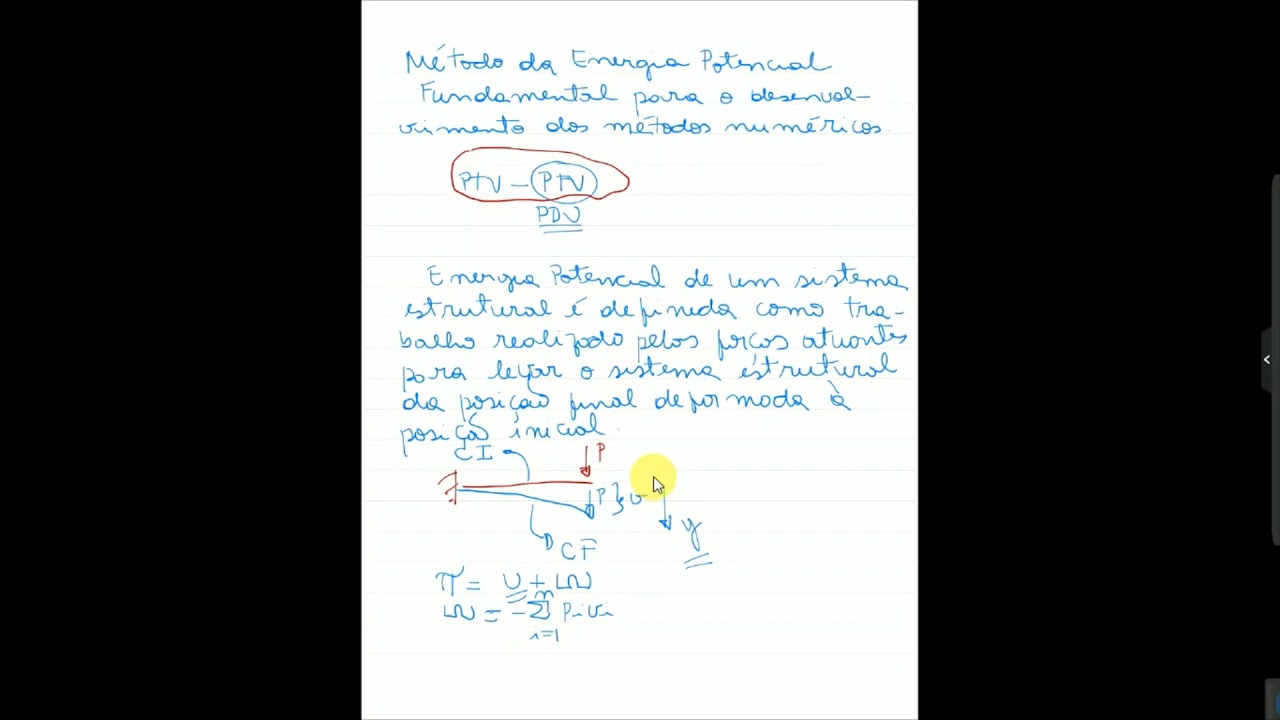 Método da Energia Potencial
Fundamental para o desenvol-
vimento dos métodos numéricos.
PTV - PFV
PDV
Energia Potencial de um sistema
estrutural é definida como tra-
balho realizado pelas forças atuantes
para levar o sistema estrutural
da posição final deformada à
posição inicial.
CI
P
P } v
y
CF
π = U + W
W = - Σ Pi vi
n
i=1